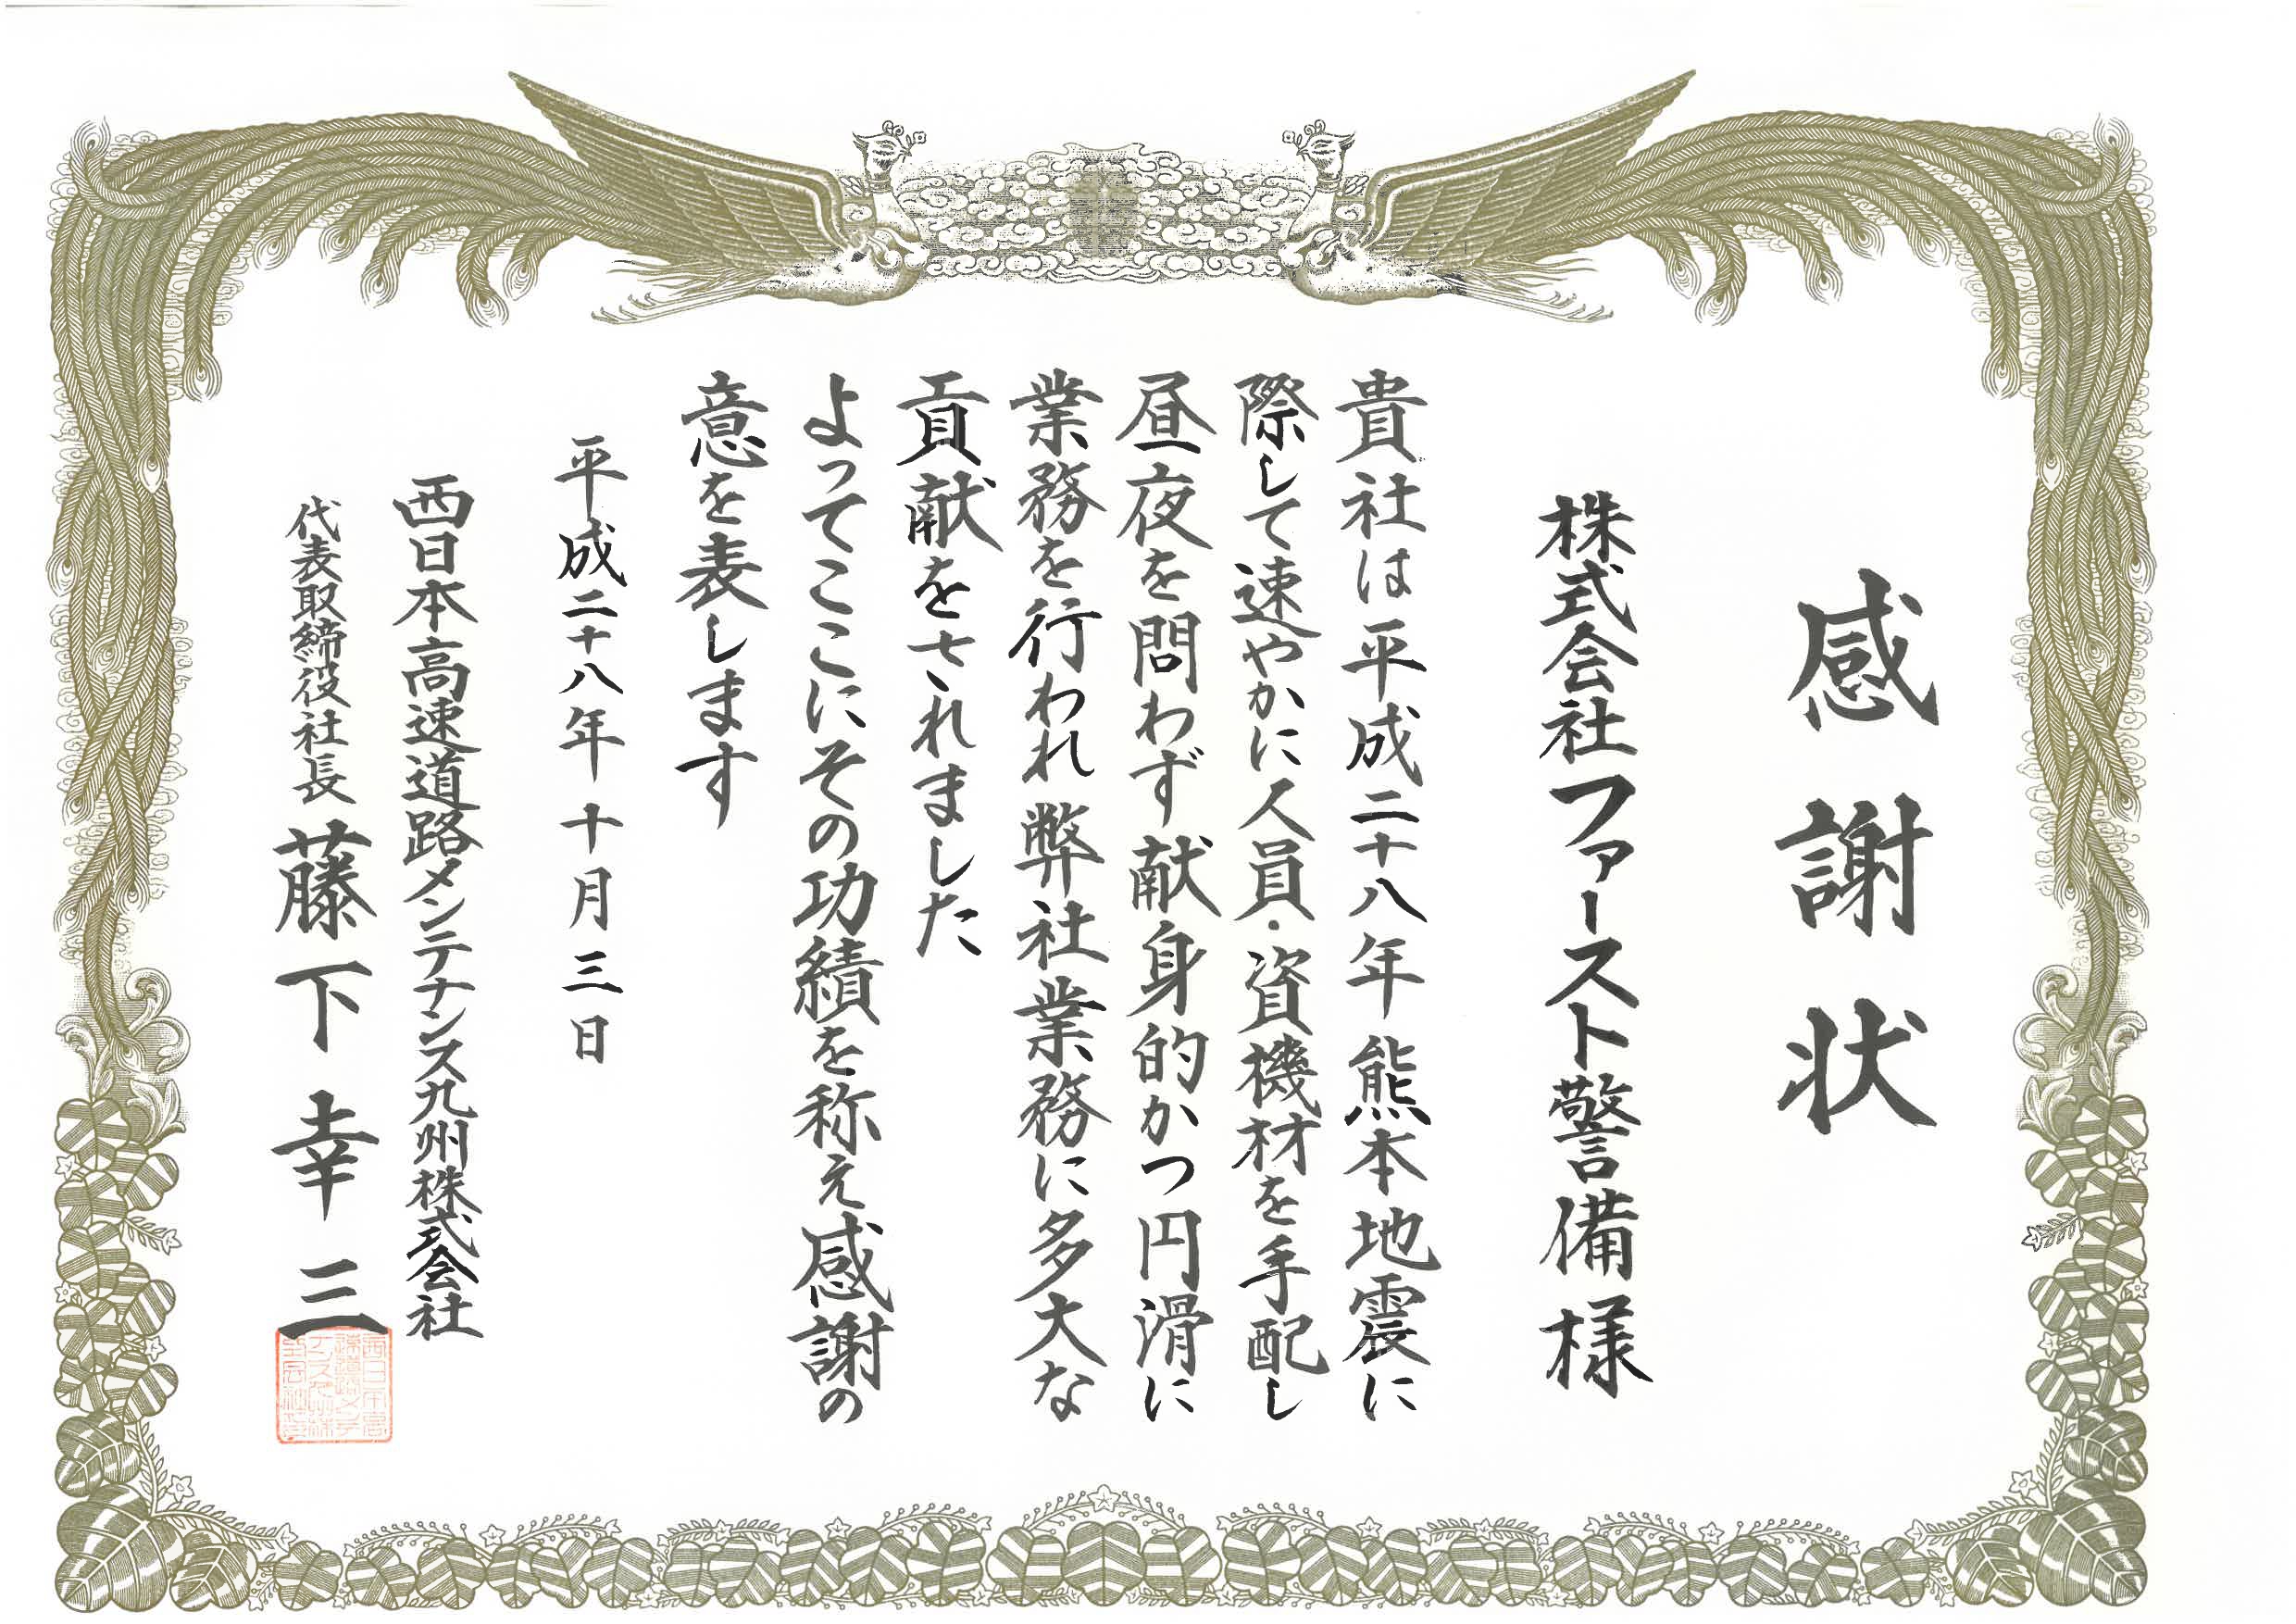 感謝状
株式会社ファースト警備様
貴社は平成二十八年熊本地震に
際して速やかに人員・資機材を手配し
昼夜を問わず献身的かつ円滑に
業務を行われ弊社業務に多大な
貢献をされました
よってここにその功績を称え感謝の
意を表します
平成二十八年十月三日
西日本高速道路メンテナンス九州株式会社
代表取締役社長 藤下幸三